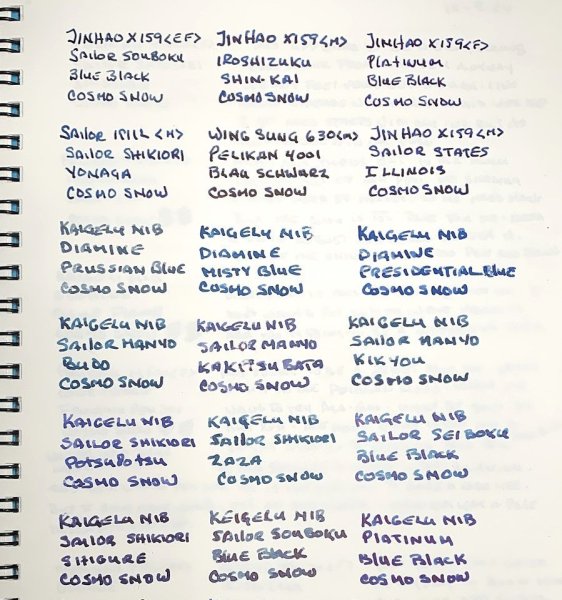 JINHAO X159<EF>
SAILOR SOUBOKU
BLUE BLACK
COSMO SNOW
JINHAO X159<M>
IROSHIZUKU
SHIN-KAI
COSMO SNOW
JINHAO X159<F>
PLATINUM
BLUE BLACK
COSMO SNOW
SAILOR 1911L <M>
SAILOR SHIKIORI
YONAGA
COSMO SNOW
WING SUNG 630<M>
PELIKAN 4001
BLAU SCHWARZ
COSMO SNOW
JINHAO X159<M>
SAILOR STATES
ILLINOIS
COSMO SNOW
KAIGELU NIB
DIAMINE
PRUSSIAN BLUE
COSMO SNOW
KAIGELU NIB
DIAMINE
MISTY BLUE
COSMO SNOW
KAIGELU NIB
DIAMINE
PRESIDENTIAL BLUE
COSMO SNOW
KAIGELU NIB
SAILOR MANYO
BUDO
COSMO SNOW
KAIGELU NIB
SAILOR MANYO
KAKITSUBATA
COSMO SNOW
KAIGELU NIB
SAILOR MANYO
KIKYOU
COSMO SNOW
KAIGELU NIB
SAILOR SHIKIORI
POTSUPOTSU
COSMO SNOW
KAIGELU NIB
SAILOR SHIKIORI
ZAZA
COSMO SNOW
KAIGELU NIB
SAILOR SEIBOKU
BLUE BLACK
COSMO SNOW
KAIGELU NIB
SAILOR SHIKIORI
SHIGURE
COSMO SNOW
KEIGELU NIB
SAILOR SOUBOKU
BLUE BLACK
COSMO SNOW
KAIGELU NIB
PLATINUM
BLUE BLACK
COSMO SNOW